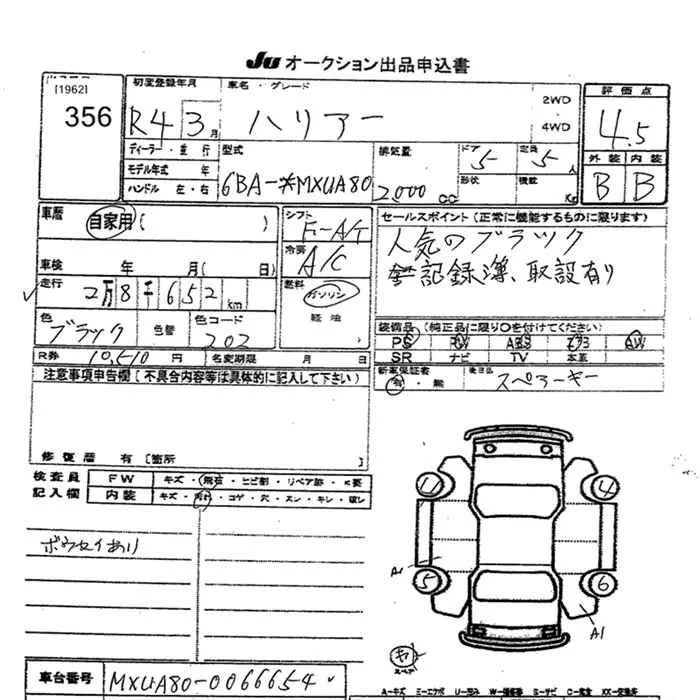 JU オークション出品申込書
[1962]
356
初度登録年月
R4 3月
車名・グレード
ハリアー
2WD
4WD
評価点
4.5
外装 内装
B B
ディーラー・並行
モデル年式 年
ハンドル 左・右
型式
6BA-※MXUA80
排気量
2,000 cc
ドア 5
定員 5 人
形状
積載 Kg
車歴
自家用 ( )
シフト
F-A/T
セールスポイント (正常に機能するものに限ります)
人気のブラック
整記録簿、取説有り
車検 年 月 ( 日)
冷房
A/C
走行 2万8千652km
燃料
ガソリン
軽油
色
ブラック
色替
色コード
202
装備品 (純正品に限り○を付けてください)
PS PW ABS エアB AW
SR ナビ TV 本革
R券 10,510円 名変期限 月 日
新車保証書
有・無
後日品
スペアーキー
注意事項申告欄 (不具合内容等は具体的に記入して下さい)
修復歴 有 [箇所 ]
検査員
記入欄
FW キズ・飛石・ヒビ割・リペア跡・×要
内装 キズ・汚れ・コゲ・穴・スレ・キレ・破レ
ボウセイあり
4
5
6
A1
A1
スペア
車台番号 MXUA80-0066654
A-キズ